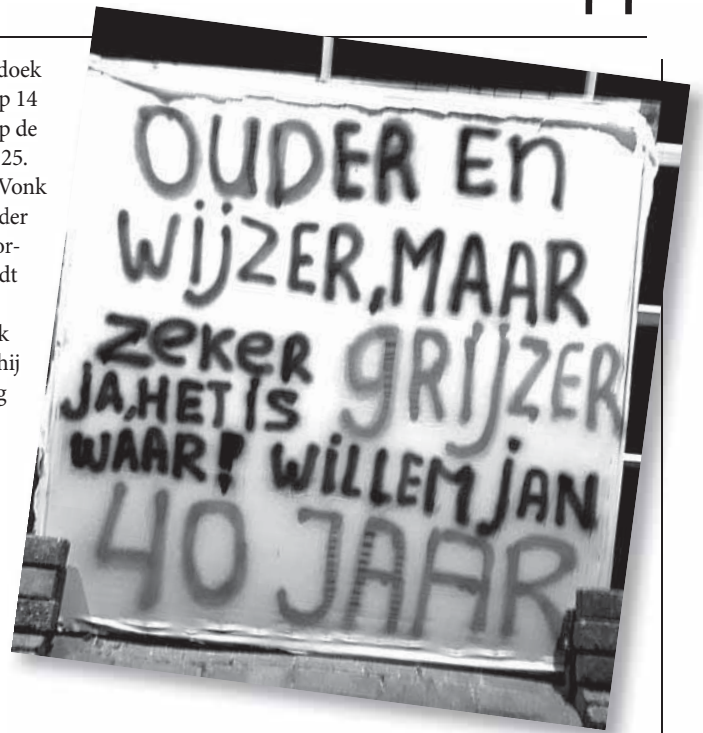 doek
p 14
p de
25.
Vonk
der
or-
dt
k
hij
g
OUDER En
WijZER, MAAR
zeker gRIJZER
jA, HET IS
WAAR! WiLLEM jAN
40 JAAR